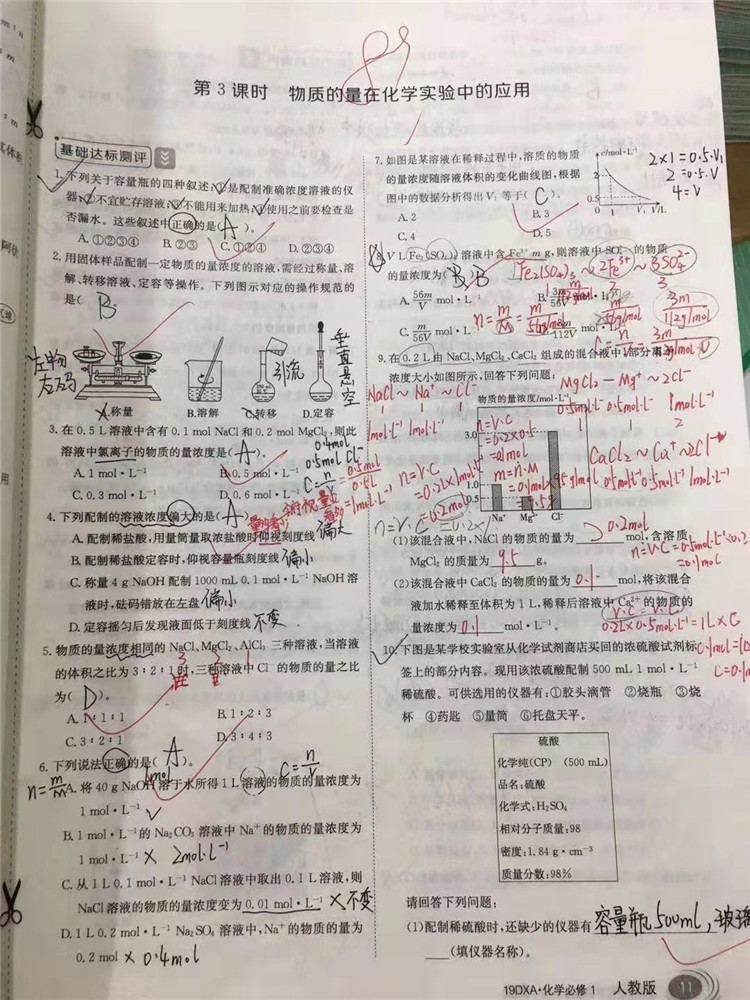 第3课时 物质的量在化学实验中的应用
基础达标测评
1.下列关于容量瓶的四种叙述:①是配制准确浓度溶液的仪
器;②不宜贮存溶液;③不能用来加热;④使用之前要检查是
否漏水。这些叙述中正确的是( A )。
A.①②③④ B.②③ C.①②④ D.②③④
2.用固体样品配制一定物质的量浓度的溶液,需经过称量、溶
解、转移溶液、定容等操作。下列图示对应的操作规范的
是( B )
左物
左码
引流
垂直悬空
A.称量 B.溶解 C.转移 D.定容
3.在0.5 L溶液中含有0.1 mol NaCl和0.2 mol MgCl₂,则此
溶液中氯离子的物质的量浓度是( A )。
A.1 mol·L⁻¹ B.0.5 mol·L⁻¹
C.0.3 mol·L⁻¹ D.0.6 mol·L⁻¹
0.4mol
0.5mol Cl⁻
4.下列配制的溶液浓度偏大的是( A )
A.配制稀盐酸,用量筒量取浓盐酸时仰视刻度线 偏大
B.配制稀盐酸定容时,仰视容量瓶刻度线 偏小
C.称量4 g NaOH配制1000 mL 0.1 mol·L⁻¹ NaOH溶
液时,砝码错放在左盘 偏小
D.定容摇匀后发现液面低于刻度线 不变
5.物质的量浓度相同的NaCl、MgCl₂、AlCl₃三种溶液,当溶液
的体积之比为3∶2∶1时,三种溶液中Cl⁻的物质的量之比
为( D )。
A.1∶1∶1 B.1∶2∶3
C.3∶2∶1 D.3∶4∶3
6.下列说法正确的是( A )。
n=m/M
1mol
C=n/V
A.将40 g NaOH溶于水所得1 L溶液的物质的量浓度为
1 mol·L⁻¹ √
B.1 mol·L⁻¹的Na₂CO₃溶液中Na⁺的物质的量浓度为
1 mol·L⁻¹ × 2mol·L⁻¹
C.从1 L 0.1 mol·L⁻¹ NaCl溶液中取出0.1 L溶液,则
NaCl溶液的物质的量浓度变为0.01 mol·L⁻¹ ×不变
D.1 L 0.2 mol·L⁻¹ Na₂SO₄溶液中,Na⁺的物质的量为
0.2 mol × 0.4mol
7.如图是某溶液在稀释过程中,溶质的物质
的量浓度随溶液体积的变化曲线图,根据
图中的数据分析得出V₁等于( C )。
A.2 B.3
C.4 D.5
c/mol·L⁻¹
2
0.5
0 1 V₁ V/L
2×1=0.5·V₁
2=0.5·V
4=V
8.V L Fe₂(SO₄)₃溶液中含Fe³⁺ m g,则溶液中SO₄²⁻的物质
的量浓度为( B ) B
Fe₂(SO₄)₃~2Fe³⁺~3SO₄²⁻
A.56m/V mol·L⁻¹ B.3m/56V mol·L⁻¹
C.m/56V mol·L⁻¹ 112V mol·L⁻¹
n=m/M=m/56g/mol
3m/112g/mol
9.在0.2 L由NaCl、MgCl₂、CaCl₂组成的混合液中,部分离
浓度大小如图所示,回答下列问题:
NaCl~Na⁺~Cl⁻
1 1 1
1mol·L⁻¹ 1mol·L⁻¹
MgCl₂-Mg⁺~2Cl⁻
0.5mol·L⁻ 0.5mol·L⁻ 1mol·L⁻¹
CaCl₂~Ca⁺~2Cl⁻
物质的量浓度/mol·L⁻¹
3.0
1.0
0.5
Na⁺ Mg²⁺ Cl⁻
n=V·C
=0.2×0.5
=0.1mol
m=n·M
n=V·C
=0.2L×1mol·L
=0.2mol
n=V·C=0.2×1
(1)该混合液中,NaCl的物质的量为 0.2mol mol,含溶质
MgCl₂的质量为 9.5 g。
n=V·C=0.5mol·L⁻¹×0.2
=0.1mol
(2)该混合液中CaCl₂的物质的量为 0.1 mol,将该混合
液加水稀释至体积为1 L,稀释后溶液中Ca²⁺的物质的
量浓度为 0.1 mol·L⁻¹。
V·C=V·C
0.2L×0.5mol·L⁻¹=1L×C
10.下图是某学校实验室从化学试剂商店买回的浓硫酸试剂标
签上的部分内容。现用该浓硫酸配制500 mL 1 mol·L⁻¹
稀硫酸。可供选用的仪器有:①胶头滴管 ②烧瓶 ③烧
杯 ④药匙 ⑤量筒 ⑥托盘天平。
硫酸
化学纯(CP) (500 mL)
品名:硫酸
化学式:H₂SO₄
相对分子质量:98
密度:1.84 g·cm⁻³
质量分数:98%
请回答下列问题:
(1)配制稀硫酸时,还缺少的仪器有 容量瓶500ml,玻璃
(填仪器名称)。
19DXA·化学必修1 人教版 11